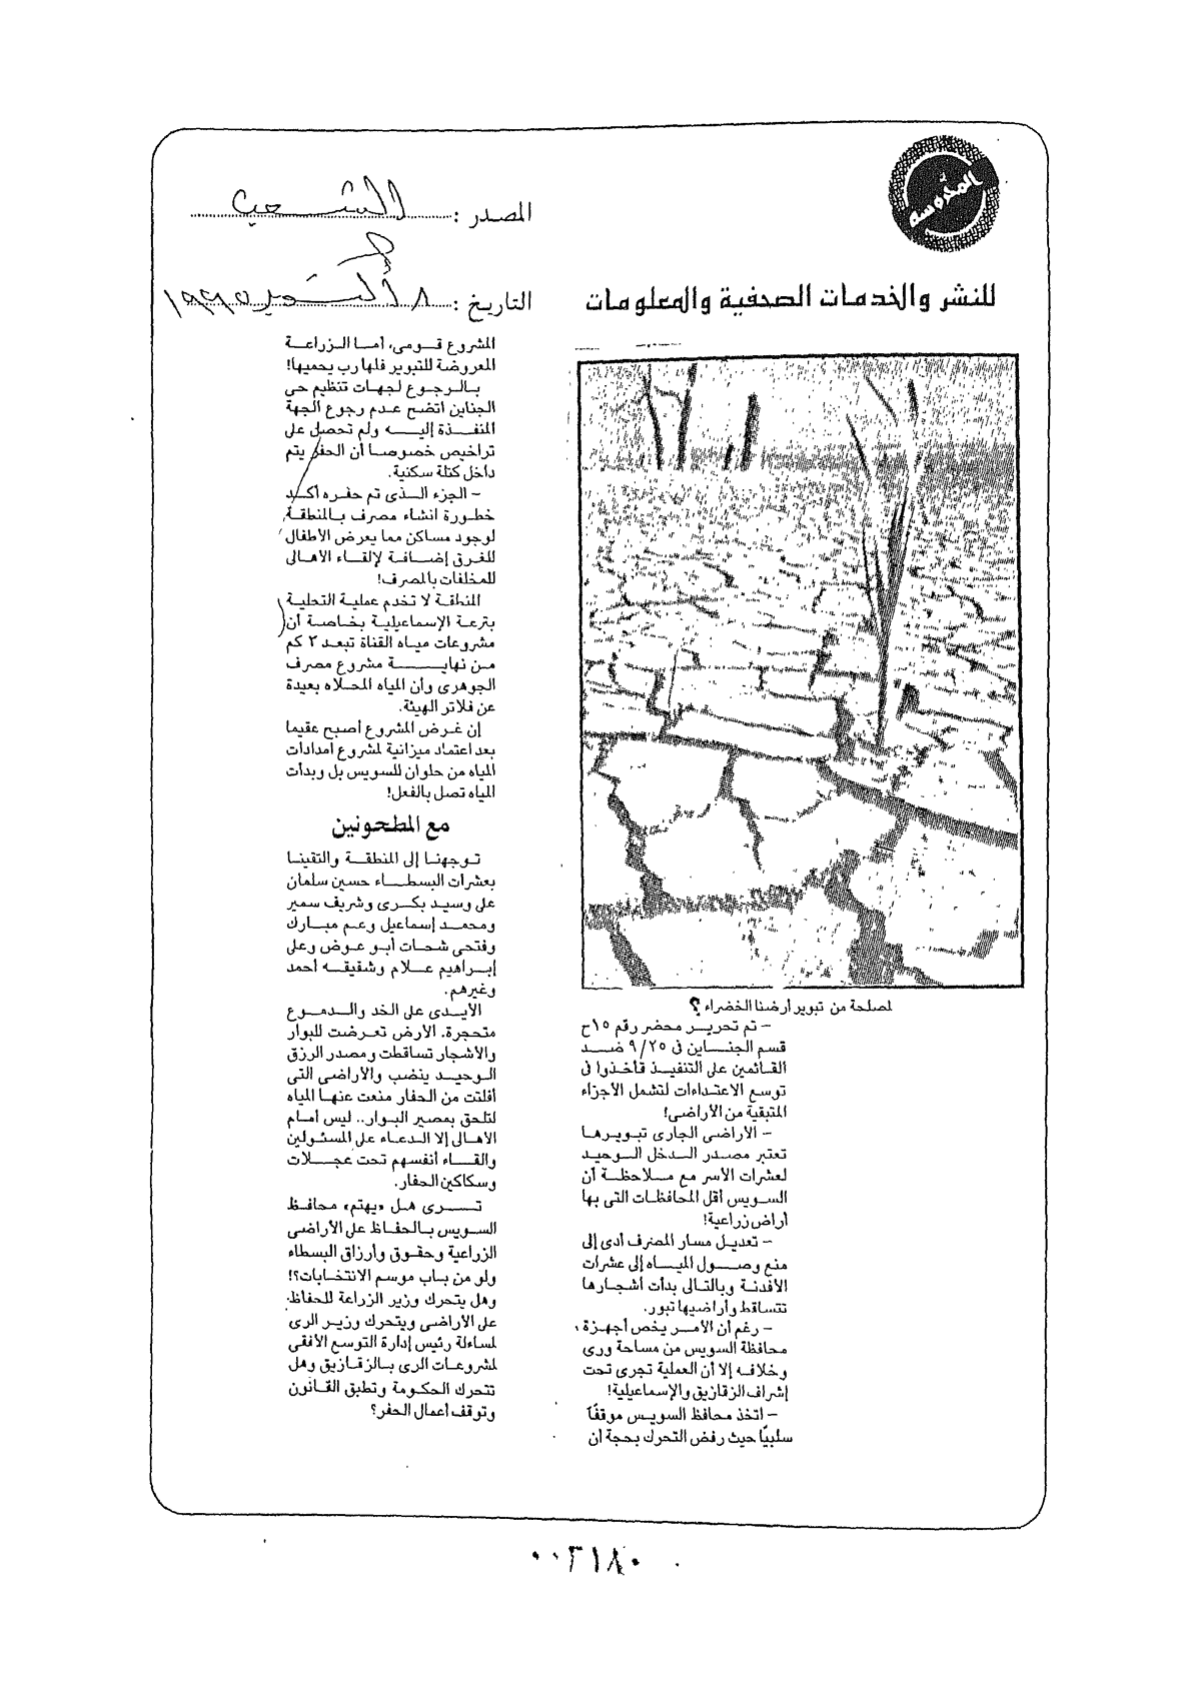 المحروسة
للنشر والخدمات الصحفية والمعلومات
المصدر : الشعب
التاريخ : ٨ أكتوبر ١٩٩٥
لمصلحة من تبوير أرضنا الخضراء ؟
– تم تحرير محضر رقم ١٥ح
قسم الجناين فى ٩/٢٥ ضد
القائمين على التنفيذ فأخذوا فى
توسع الاعتداءات لتشمل الأجزاء
المتبقية من الأراضى!
– الأراضى الجارى تبويرها
تعتبر مصدر الدخل الوحيد
لعشرات الأسر مع ملاحظة أن
السويس أقل المحافظات التى بها
أراض زراعية!
– تعديل مسار المصرف أدى إلى
منع وصول المياه إلى عشرات
الأفدنة وبالتالى بدأت أشجارها
تتساقط وأراضيها تبور.
– رغم أن الأمر يخص أجهزة
محافظة السويس من مساحة ورى
وخلافه إلا أن العملية تجرى تحت
إشراف الزقازيق والإسماعيلية!
– اتخذ محافظ السويس موقفًا
سلبيًا حيث رفض التحرك بحجة أن
المشروع قومى، أما الزراعة
المعروضة للتبوير فلها رب يحميها!
بالرجوع لجهات تنظيم حى
الجناين اتضح عدم رجوع الجهة
المنفذة إليه ولم تحصل على
تراخيص خصوصا أن الحفر يتم
داخل كتلة سكنية.
– الجزء الذى تم حفره أكد
خطورة انشاء مصرف بالمنطقة
لوجود مساكن مما يعرض الأطفال
للغرق إضافة لإلقاء الأهالى
للمخلفات بالمصرف!
المنطقة لا تخدم عملية التحلية
بترعة الإسماعيلية بخاصة أن
مشروعات مياه القناة تبعد ٢ كم
من نهاية مشروع مصرف
الجوهرى وأن المياه المحلاه بعيدة
عن فلاتر الهيئة.
إن غرض المشروع أصبح عقيما
بعد اعتماد ميزانية لمشروع امدادات
المياه من حلوان للسويس بل وبدأت
المياه تصل بالفعل!
مع المطحونين
توجهنا إلى المنطقة والتقينا
بعشرات البسطاء حسين سلمان
على وسيد بكرى وشريف سمير
ومحمد إسماعيل وعم مبارك
وفتحى شحات أبو عوض وعلى
إبراهيم علام وشقيقه أحمد
وغيرهم.
الأيدى على الخد والدموع
متحجرة. الأرض تعرضت للبوار
والأشجار تساقطت ومصدر الرزق
الوحيد ينضب والأراضى التى
أفلتت من الحفار منعت عنها المياه
لتلحق بمصير البوار.. ليس أمام
الأهالى إلا الدعاء على المسئولين
والقاء أنفسهم تحت عجلات
وسكاكين الحفار.
ترى هل «يهتم» محافظ
السويس بالحفاظ على الأراضى
الزراعية وحقوق وأرزاق البسطاء
ولو من باب موسم الانتخابات؟!
وهل يتحرك وزير الزراعة للحفاظ
على الأراضى ويتحرك وزير الرى
لمساءلة رئيس إدارة التوسع الأفقى
لمشروعات الرى بالزقازيق وهل
تتحرك الحكومة وتطبق القانون
وتوقف أعمال الحفر؟